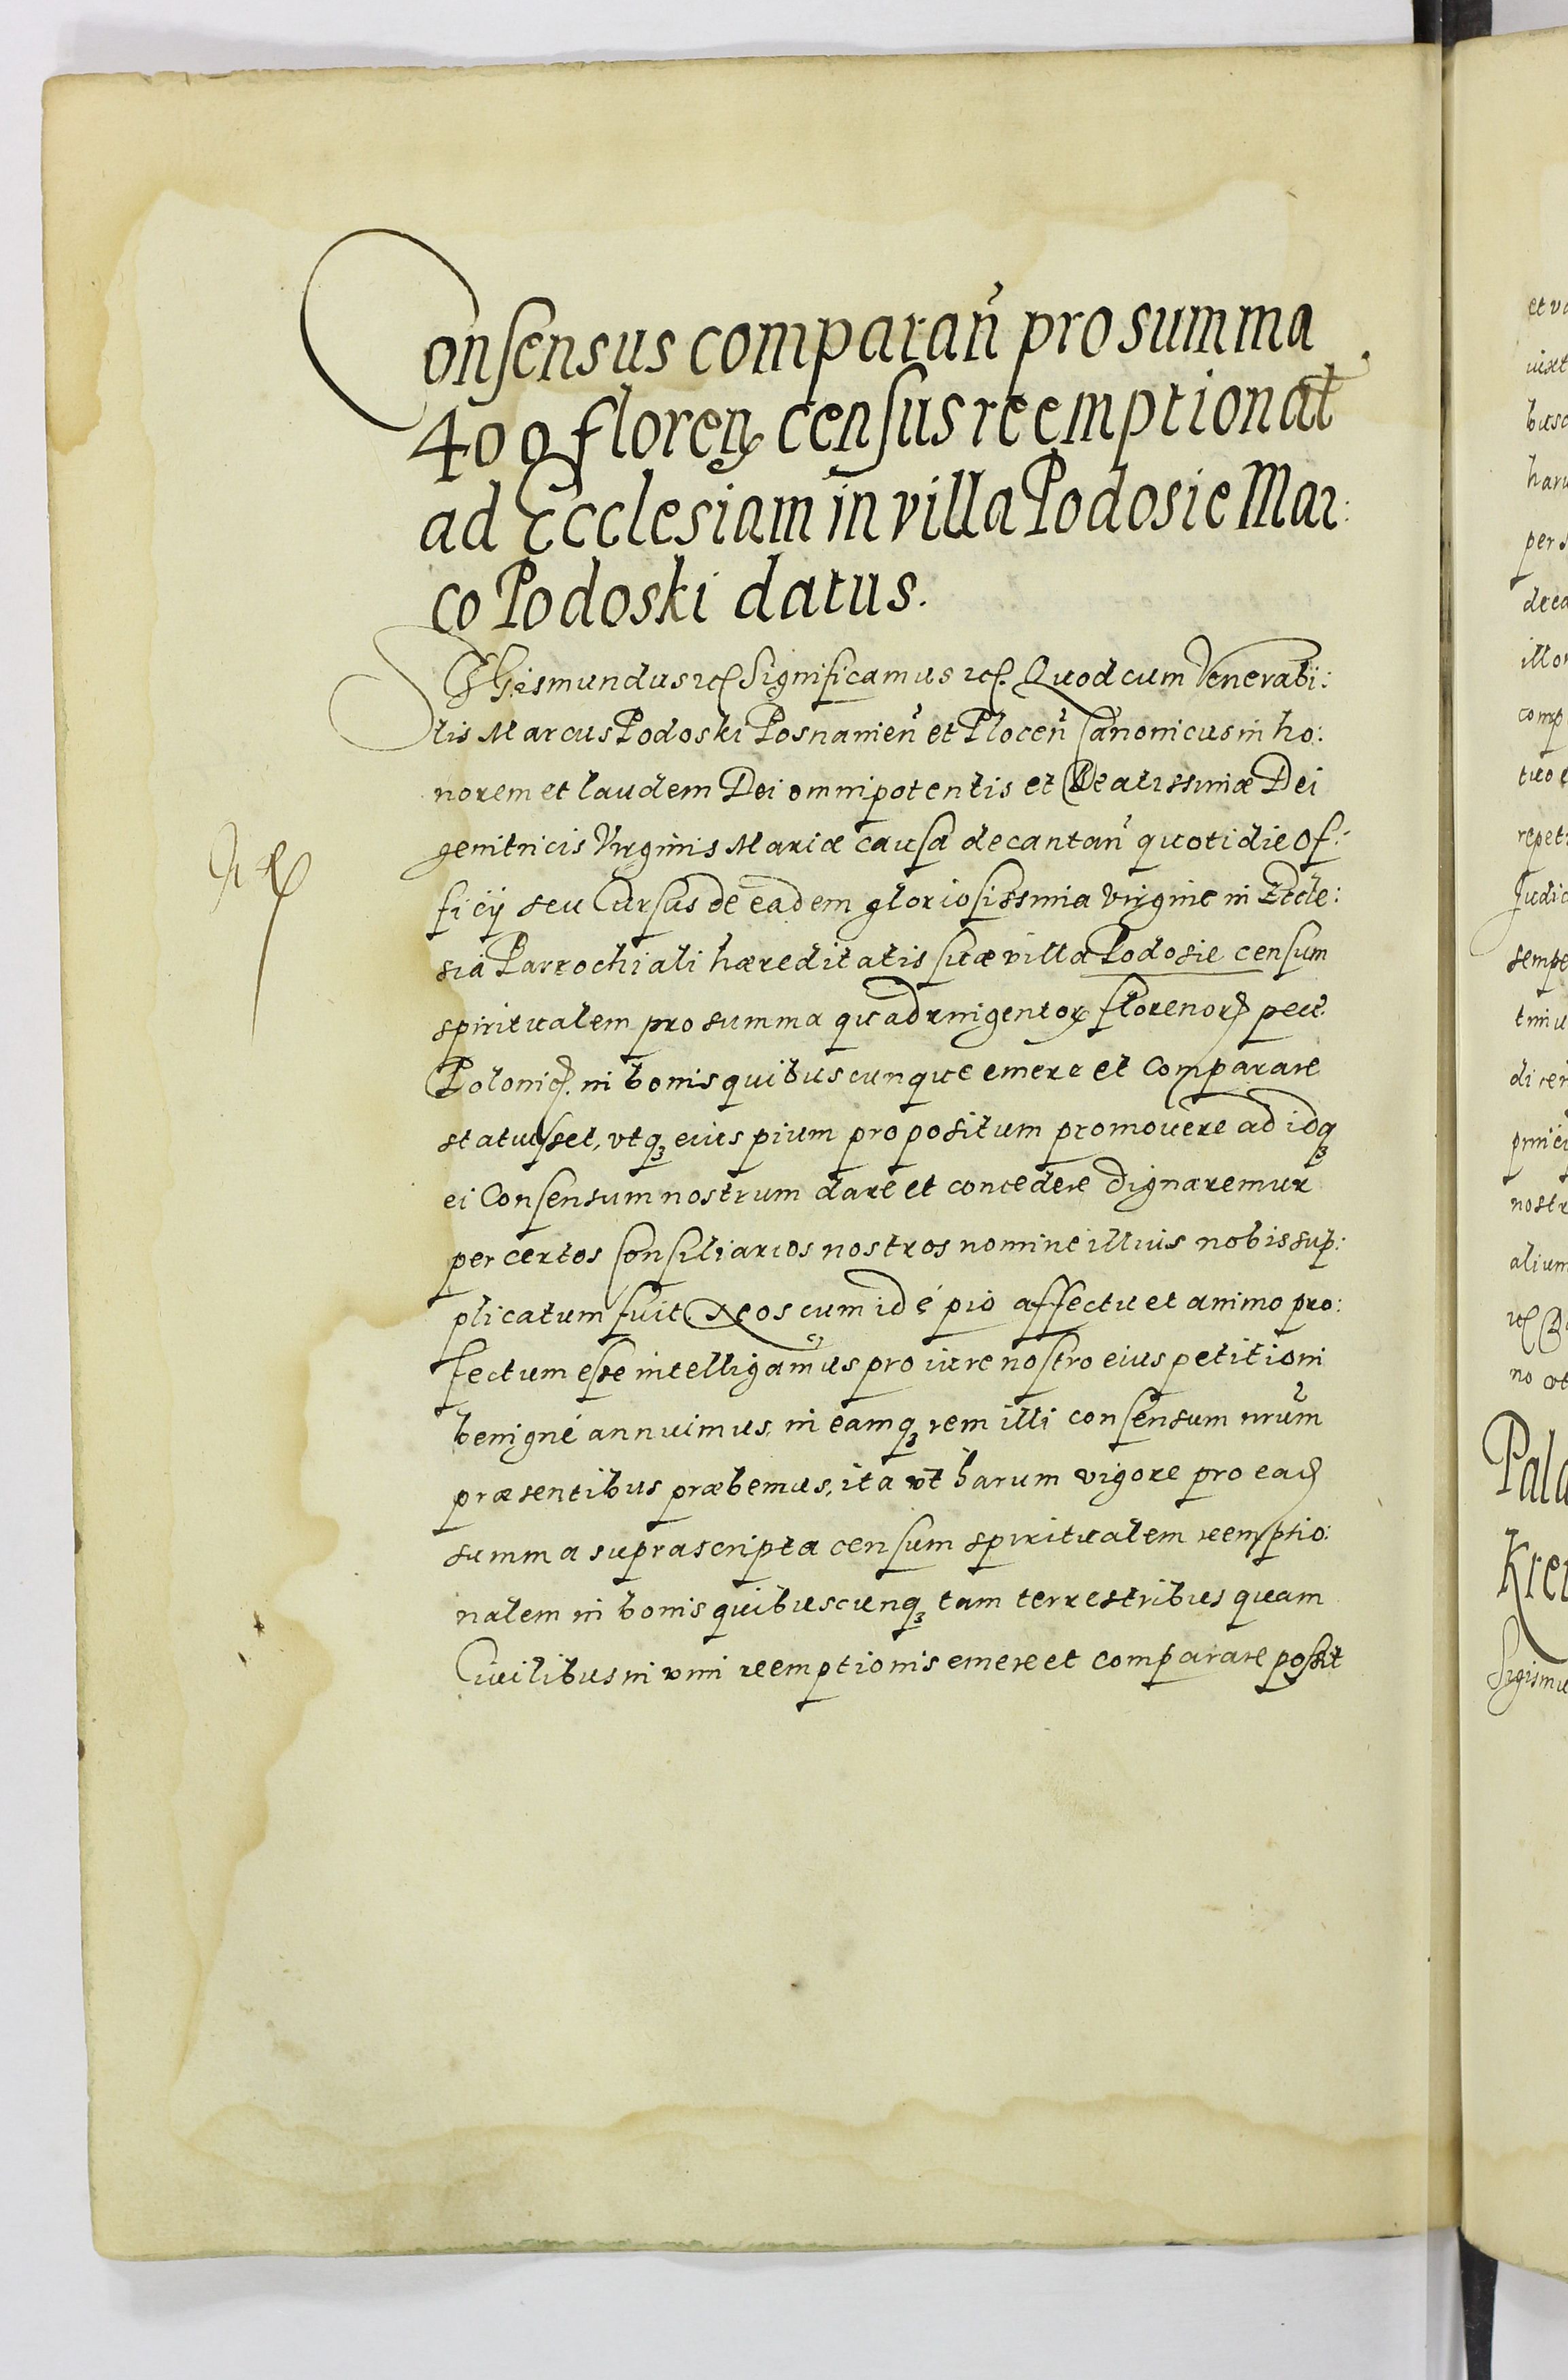 Consensus comparan̄ pro summa
400 floren census reemptional
ad Ecclesiam in villa Podosie Mar:
co Podoski datus.
Sigismundus etc. Significamus etc. Quod cum Venerabi:
lis Marcus Podoski Posnanien̄ et Plocen̄ Canonicus in ho:
norem et laudem Dei omnipotentis et Beatissimæ Dei
genitricis Virginis Mariæ causa decantan̄ quotidie of:
ficij seu Cursus de eadem gloriosissima virgine in Eccle:
sia Parrochiali hæreditatis suæ villa Podosie censum
spiritualem pro summa quadringentoꝝ florenoꝝ pecc.
Polonic. in bonis quibuscunque emere et comparare
statuisset, vtqꝫ eius pium propositum promouere ad idqꝫ
ei Consensum nostrum dare et concedere dignaremur
per certos Consiliarios nostros nomine illius nobis sup:
plicatum fuit. Nos cum id é pio affectu et animo pro:
fectum esse intelligamus pro iure nostro eius petitioni
benigné annuimus, in eamqꝫ rem illi consensum nrūm
præsentibus præbemus, ita vt harum vigore pro ead
summa suprascripta censum spiritualem reemptio:
nalem in bonis quibuscunqꝫ tam terrestribus quam
Ciuilibus in vim reemptionis emere et comparare possit
et v
iuxt
busc
haru
per s
decа
illo
comp
tuo
repet
Judic
sempe
tiniu
dicer
nostr
alium
no
Pala
Kre
Sigismu